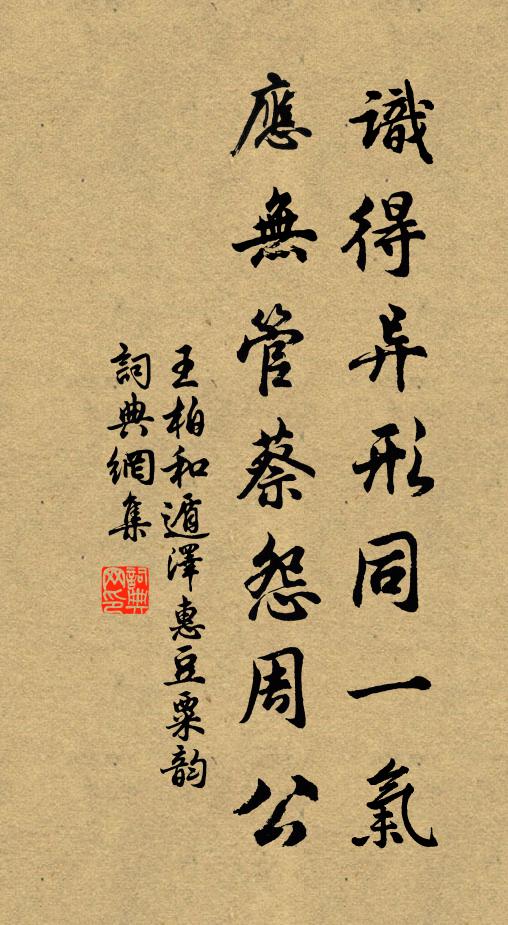 識得异形同一氣
應無管蔡怨周公
王柏和遁澤惠豆粟韵
詞典網集
詞典网印